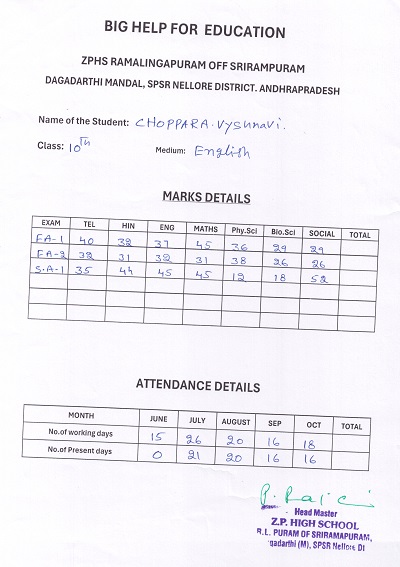 BIG HELP FOR EDUCATION
ZPHS RAMALINGAPURAM OFF SRIRAMPURAM
DAGADARTHI MANDAL, SPSR NELLORE DISTRICT. ANDHRAPRADESH
Name of the Student: CHOPPARA.Vyshnavi.
Class: 10th Medium: English
MARKS DETAILS
EXAM TEL HIN ENG MATHS Phy.Sci Bio.Sci SOCIAL TOTAL
FA-1 40 32 37 45 36 29 29
FA-2 32 31 32 31 38 26 26
S.A-1 35 44 45 45 12 18 52
ATTENDANCE DETAILS
MONTH JUNE JULY AUGUST SEP OCT TOTAL
No.of working days 15 26 20 16 18
No.of Present days 0 21 20 16 16
Head Master
Z.P. HIGH SCHOOL
R.L. PURAM OF SRIRAMAPURAM,
gadarthi (M), SPSR Nellore Dt